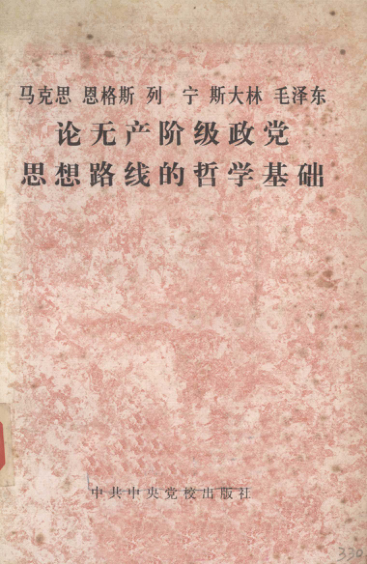 马克思 恩格斯 列 宁 斯大林 毛泽东
论无产阶级政党
思想路线的哲学基础
中共中央党校出版社
330